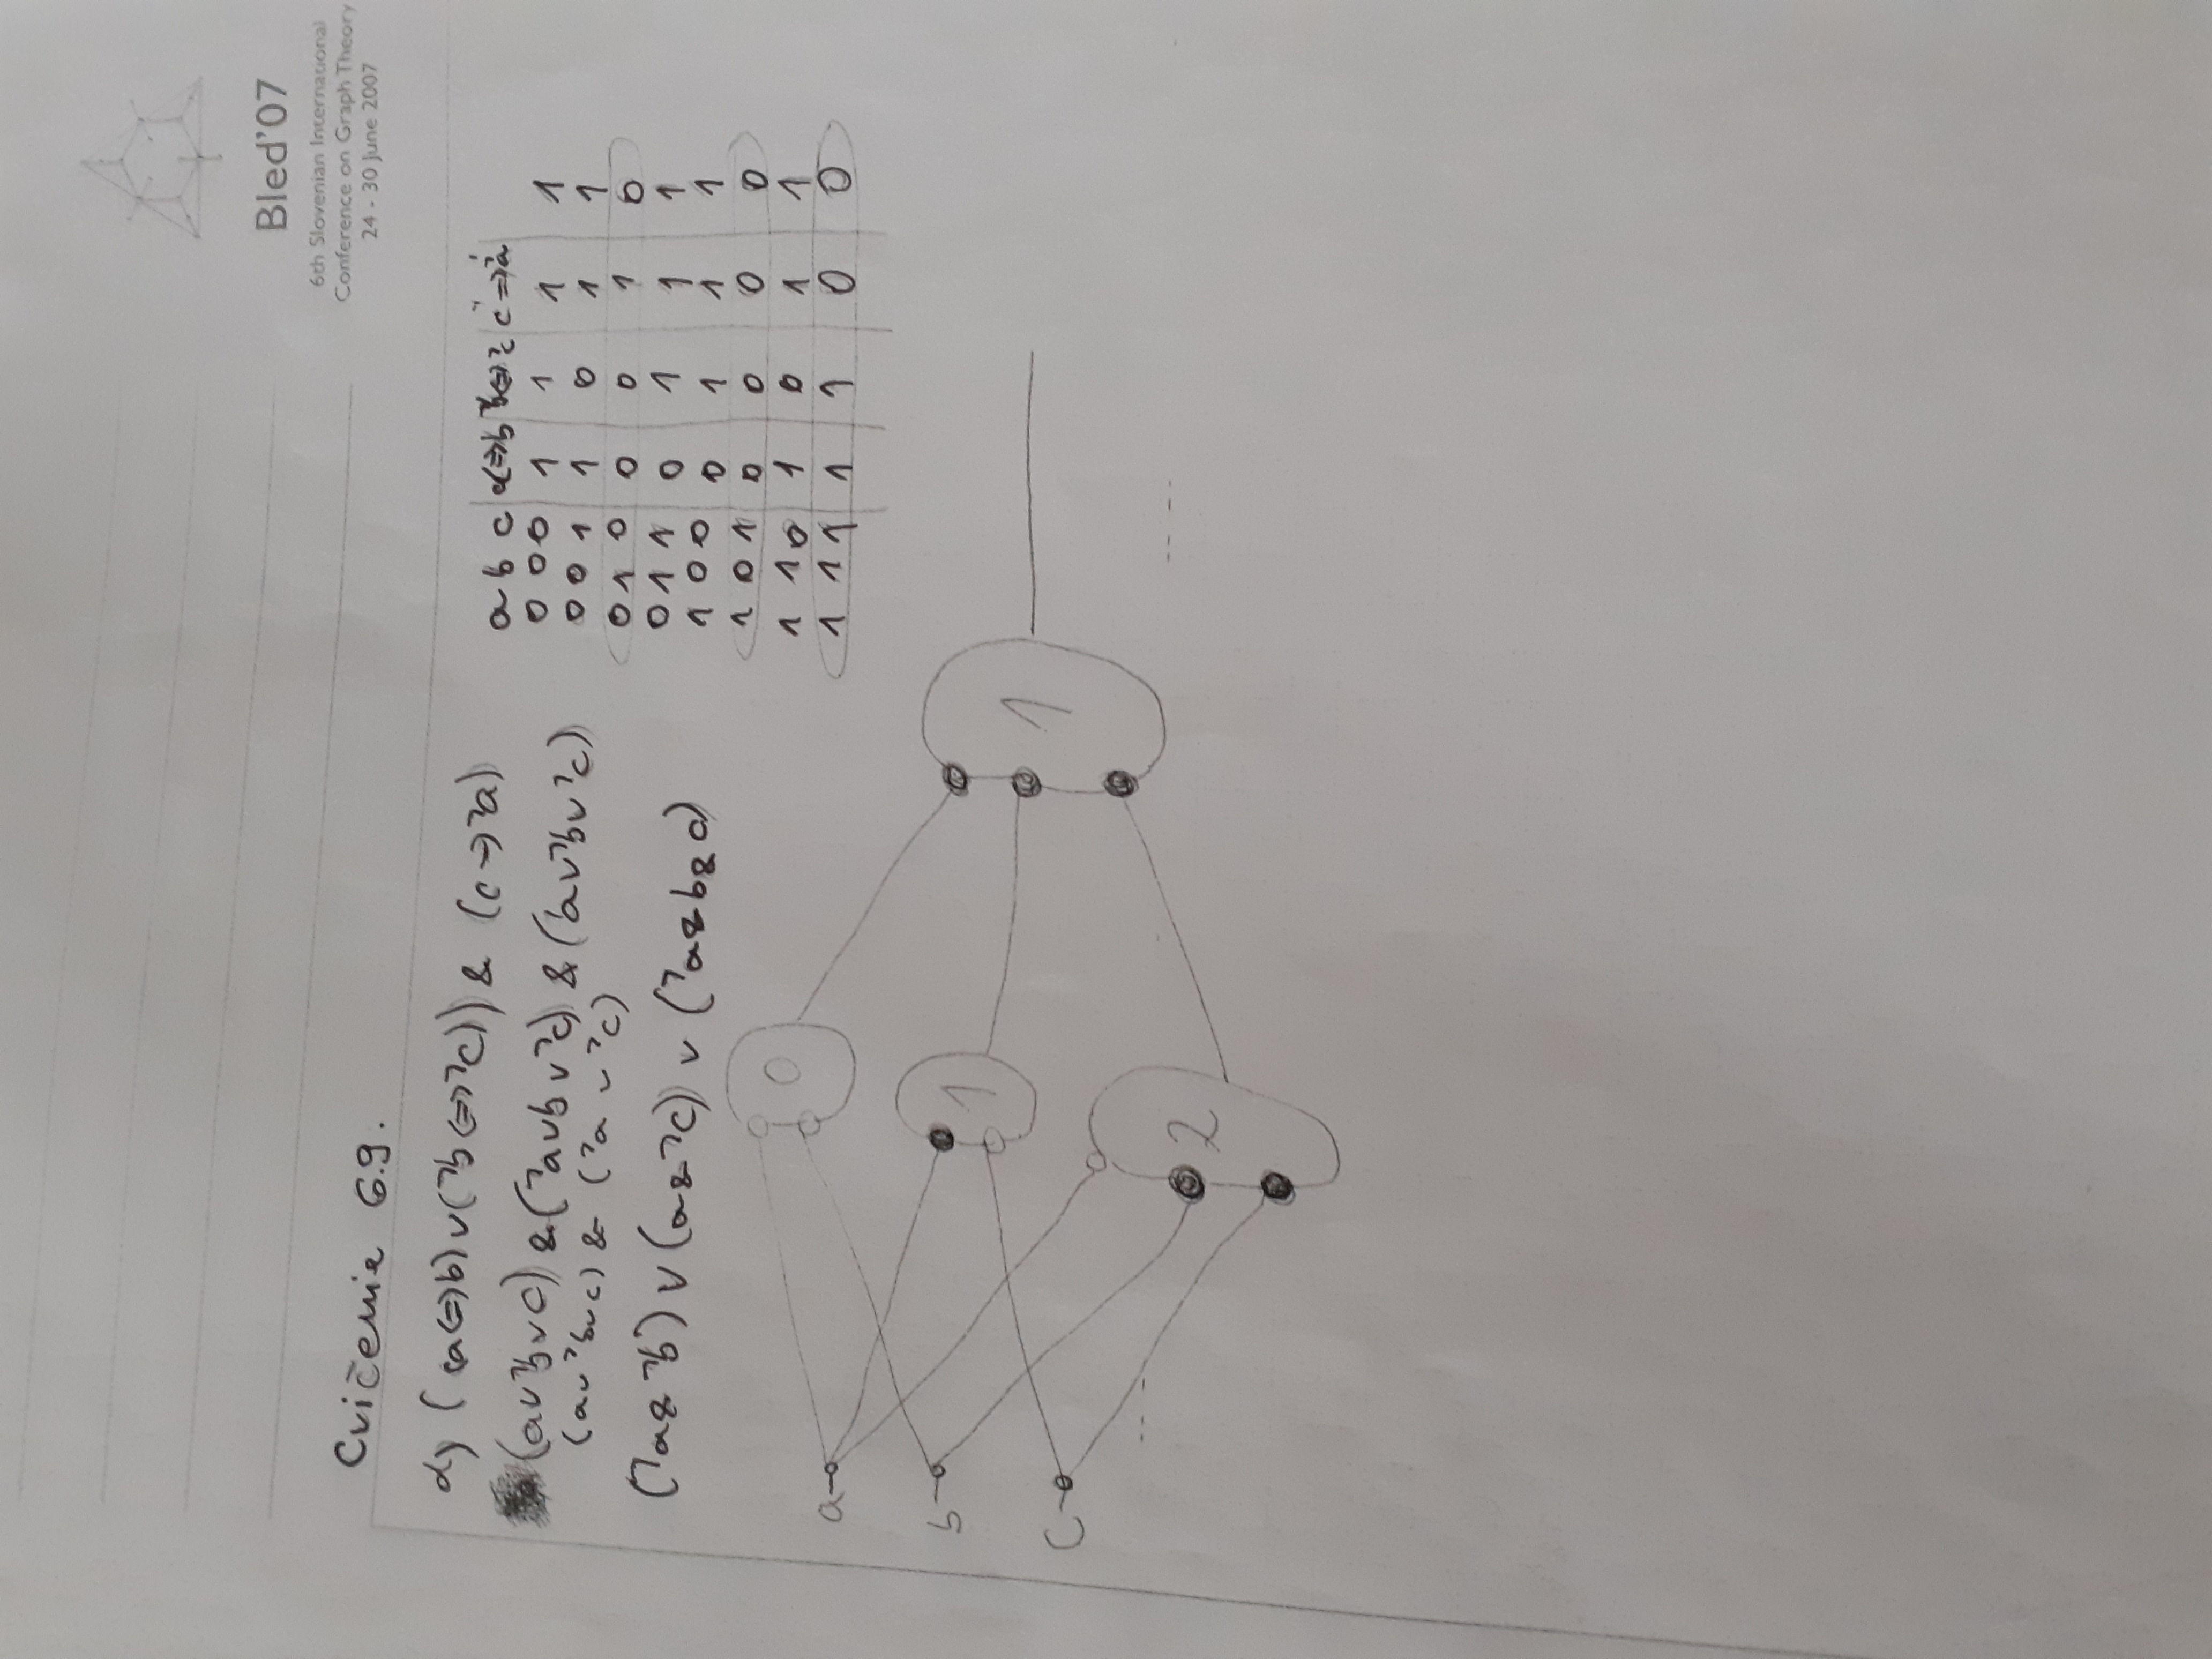 Bled'07
6th Slovenian International
Conference on Graph Theory
24 - 30 June 2007
Cvičenie 6.9.
d) ((a⇔b)∨(¬b⇔¬c)) & (c→¬a)
(a∨¬b∨c) & (¬a∨b∨¬c) & (¬a∨¬b∨¬c)
(a∨¬b∨c) & (¬a∨¬c)
(¬a&¬b) ∨ (a&¬c) ∨ (¬a&b&c)
a b c a⇔b ¬b⇔¬c c→¬a
0 0 0 1 1 1 1
0 0 1 1 0 1 1
0 1 0 0 0 1 0
0 1 1 0 1 1 1
1 0 0 0 1 1 1
1 0 1 0 0 0 0
1 1 0 1 0 1 1
1 1 1 1 1 0 0
0
a
b
1
1
c
2